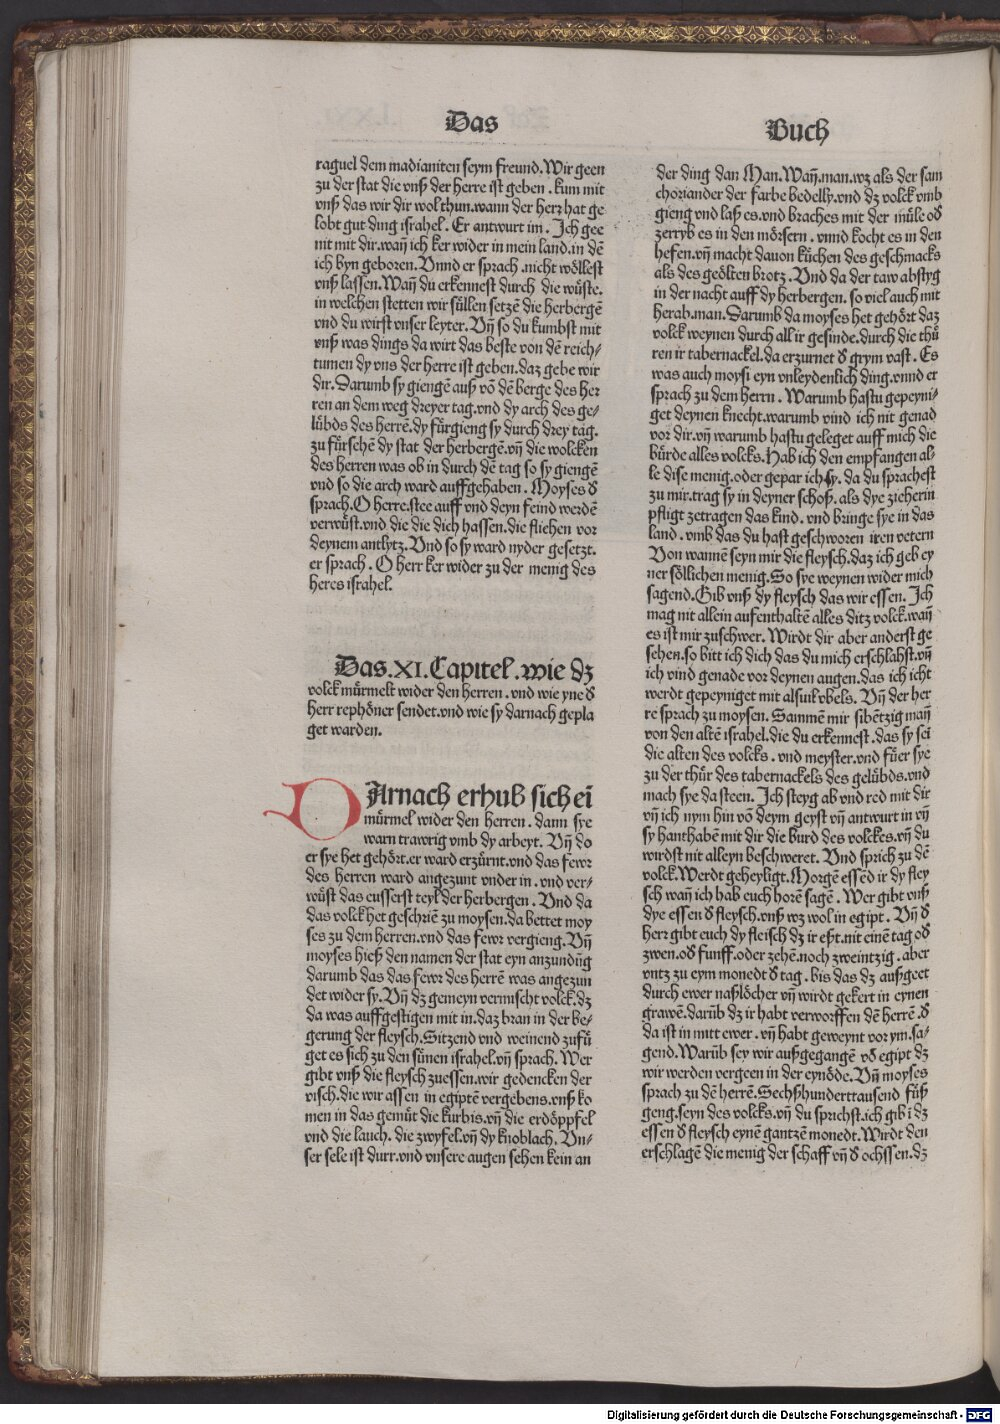 Das
Buch
raguel dem madianiten seym freund. Wir geen
zu der stat die vnß der herre ist geben. kum mit
vnß das wir dir wol thun. wann der herꝛ hat ge
lobt gut ding israhel. Er antwurt im. Ich gee
nit mit dir. wañ ich ker wider in mein land. in dē
ich byn geboren. Vnnd er sprach. nicht wöllest
vnß lassen. Wañ du erkennest durch die wüste.
in welchen stetten wir süllen setzē die herbergē
vnd du wirst vnser leyter. Vñ so du kumbst mit
vnß was dings da wirt das beste von dē reich/
tumen dy vns der herre ist geben. daz gebe wir
dir. Darumb sy giengē auß võ dē berge des her
ren an dem weg dreyer tag. vnd dy arch des ge/
lübds des herrē. dy fürgieng sy durch drey tag.
zu fürsehē dy stat der herbergē. vñ die wolcken
des herren was ob in durch dē tag so sy giengē
vnd so die arch ward auffgehaben. Moyses ď
sprach. O herre. stee auff vnd deyn feind werdē
verwüst. vnd die die dich hassen. die fliehen vor
deynem antlytz. Vnd so sy ward nyder gesetzt.
er sprach. O herr ker wider zu der menig des
heres israhel.
Das. XI. Capitel. wie dz
volck mürmelt wider den herren. vnd wie yne ď
herr rephöner sendet. vnd wie sy darnach gepla
get warden.
DArnach erhub sich eī
mürmel wider den herren. dann sye
warn trawrig vmb dy arbeyt. Vñ do
er sye het gehört. er ward erzürnt. vnd das fewr
des herren ward angezunt vnder in. vnd ver/
wüst das eusserst teyl der herbergen. Vnd da
das volck het geschriē zu moysen. da bettet moy
ses zu dem herren. vnd das fewr vergieng. Vñ
moyses hieß den namen der stat eyn anzundũg
darumb das das fewr des herrē was angezun
det wider sy. Vñ dz gemeyn vermischt volck. dz
da was auffgestigen mit in. daz bran in der be/
gerung der fleysch. Sitzend vnd weinend zufü
get es sich zu den sünen israhel. vñ sprach. Wer
gibt vnß die fleysch zuessen. wir gedencken der
visch. die wir assen in egiptē vergebens. vnß ko
men in das gemüt die kurbis. vñ die erdöppfel
vnd die lauch. die zwyfel. vñ dy knoblach. Vn/
ser sele ist durr. vnd vnsere augen sehen kein an
der ding dan Man. Wañ. man. wz als der sam
choriander der farbe bedelly. vnd dz volck vmb
gieng vnd laß es. vnd braches mit der müle oď
zerryb es in den mörsern. vnnd kocht es in den
hefen. vñ macht dauon küchen des geschmacks
als des geölten brotz. Vnd da der taw abstyg
in der nacht auff dy herbergen. so viel auch mit
herab. man. Darumb da moyses het gehört daz
volck weynen durch all ir gesinde. durch die thü
ren ir tabernackel. da erzurnet ď grym vast. Es
was auch moysi eyn vnleydenlich ding. vnnd er
sprach zu dem herrn. Warumb hastu gepeyni/
get deynen knecht. warumb vind ich nit genad
vor dir. vñ warumb hastu geleget auff mich die
bürde alles volcks. Hab ich den empfangen al/
le dise menig. oder gepar ich sy. da du sprachest
zu mir. trag sy in deyner schoß. als dye zieherin
pfligt zetragen das kind. vnd bringe sye in das
land. vmb das du hast geschworen iren vetern
Von wannē seyn mir die fleysch. daz ich geb ey
ner söllichen menig. So sye weynen wider mich
sagend. Gib vnß dy fleysch das wir essen. Ich
mag nit allein aufenthaltē alles ditz volck. wañ
es ist mir zuschwer. Wirdt dir aber anderst ge
sehen. so bitt ich dich das du mich erschlahst. vñ
ich vind genade vor deynen augen. das ich icht
werdt gepeyniget mit alsuil vbels. Vñ der her
re sprach zu moysen. Sammē mir sibētzig mañ
von den altē israhel. die du erkennest. das sy sei
die alten des volcks. vnd meyster. vnd füer sye
zu der thür des tabernackels des gelübds. vnd
mach sye da steen. Ich steyg ab vnd red mit dir
vñ ich nym hin võ deym geyst vñ antwurt in vñ
sy hanthabē mit dir die burd des volckes. vñ du
wirdst nit alleyn beschweret. Vnd sprich zu dē
volck. Werdt geheyligt. Morgē essēd ir dy fley
sch wañ ich hab euch horē sagē. Wer gibt vnß
dye essen ď fleysch. vnß wz wol in egipt. Vñ ď
herr gibt euch dy fleisch dz ir eßt. nit einē tag oď
zwen. oď funff. oder zehē. noch zweintzig. aber
vntz zu eym monedt ď tag. bis das dz außgeet
durch ewer naßlöcher vñ wirdt gekert in eynen
grawē. darūb dz ir habt verworffen dē herrē. ď
da ist in mitt ewer. vñ habt geweynt vor ym. sa/
gend. Warūb sey wir außgegangē vō egipt dz
wir werden vergeen in der eynöde. Vñ moyses
sprach zu dē herrē. Sechßhunderttausend füß
geng. seyn des volcks. vñ du sprichst. ich gib i dz
essen ď fleysch eynē gantzē monedt. Wirdt den
erschlagē die menig der schaff vñ ď ochssen. dz
Digitalisierung gefördert durch die Deutsche Forschungsgemeinschaft - DFG